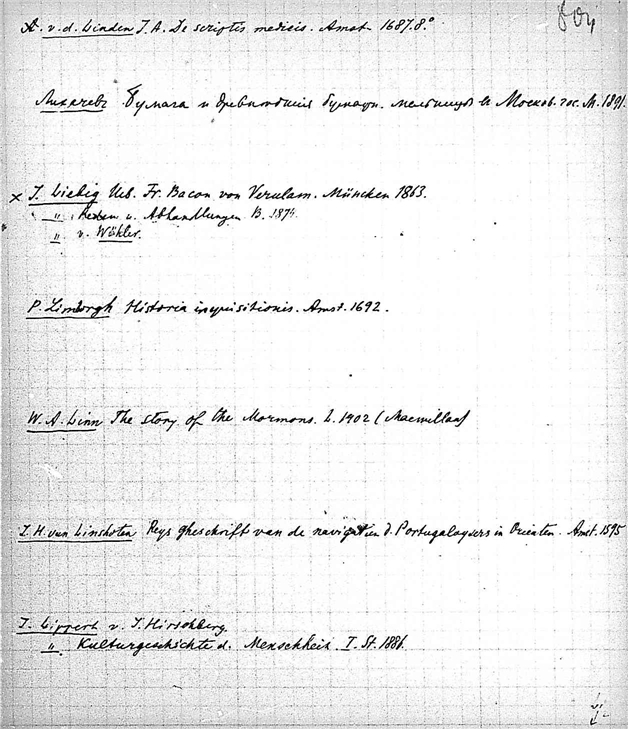 v. d. Linden J. A. De scriptis medicis. Amst. 1687. 8°
Лихачевъ Бумага и древнѣйшія бумажн. мельницы въ Москов. гос. М. 1891.
× J. Liebig Ueb. Fr. Bacon von Verulam. München 1863.
" Reden u. Abhandlungen B. 1874.
" v. Wöhler.
P. Limborgh Historia inquisitionis. Amst. 1692.
W. A. Linn The story of the Mormons. L. 1902 (Macmillan)
J. H. van Linshoten Reys gheschrift van de navigatien d. Portugaloysers in Orienten. Amst. 1595
J. Lippert v. J. Hirschberg.
" Kulturgeschichte d. Menschheit. I. St. 1886.